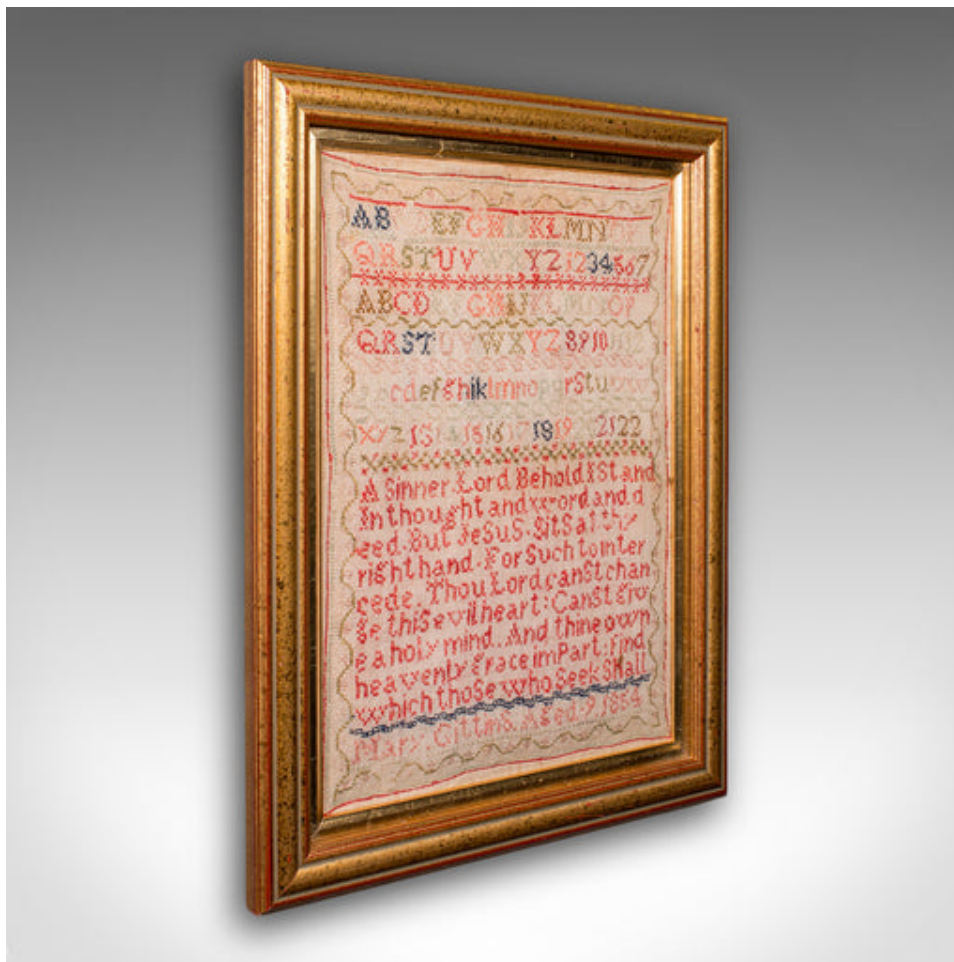 ABCDEFGHIJKLMNOP
QRSTUVWXYZ1234567
ABCDEFGHIJKLMNOP
QRSTUVWXYZ8910
abcdefghiklmnopqrstuvw
xyz 13 14 15 16 17 18 19 20 21 22
A Sinner. Lord Behold I Stand
In thought and word and d
eed. But JeSuS. SitS at thy
right hand. For Such to inter
cede. Thou Lord canSt chan
ge thiS evil heart: CanSt giv
e a holy mind. And thine own
heavenly grace imPart: find
which thoSe who Seek Shall
Mary. GittinS. Aged. 9. 1864